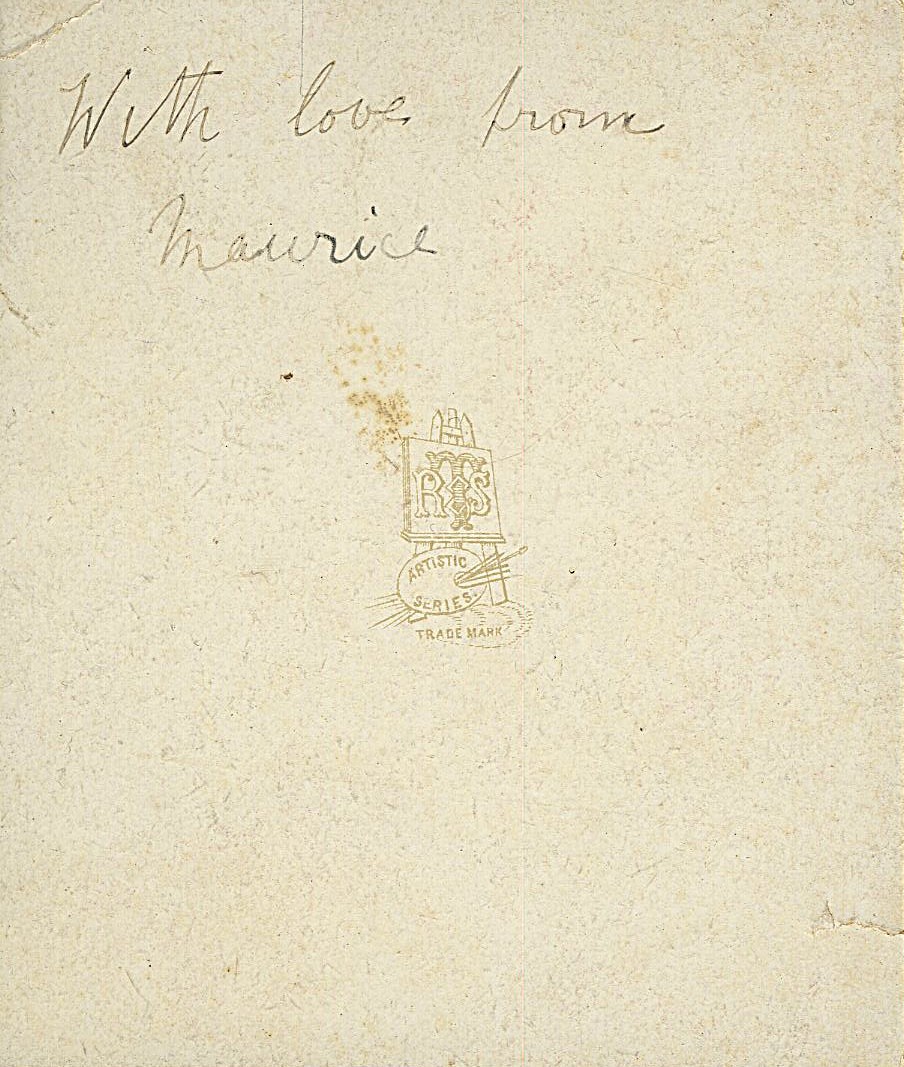 With love from
Maurice
RTS
ARTISTIC
SERIES.
TRADE MARK